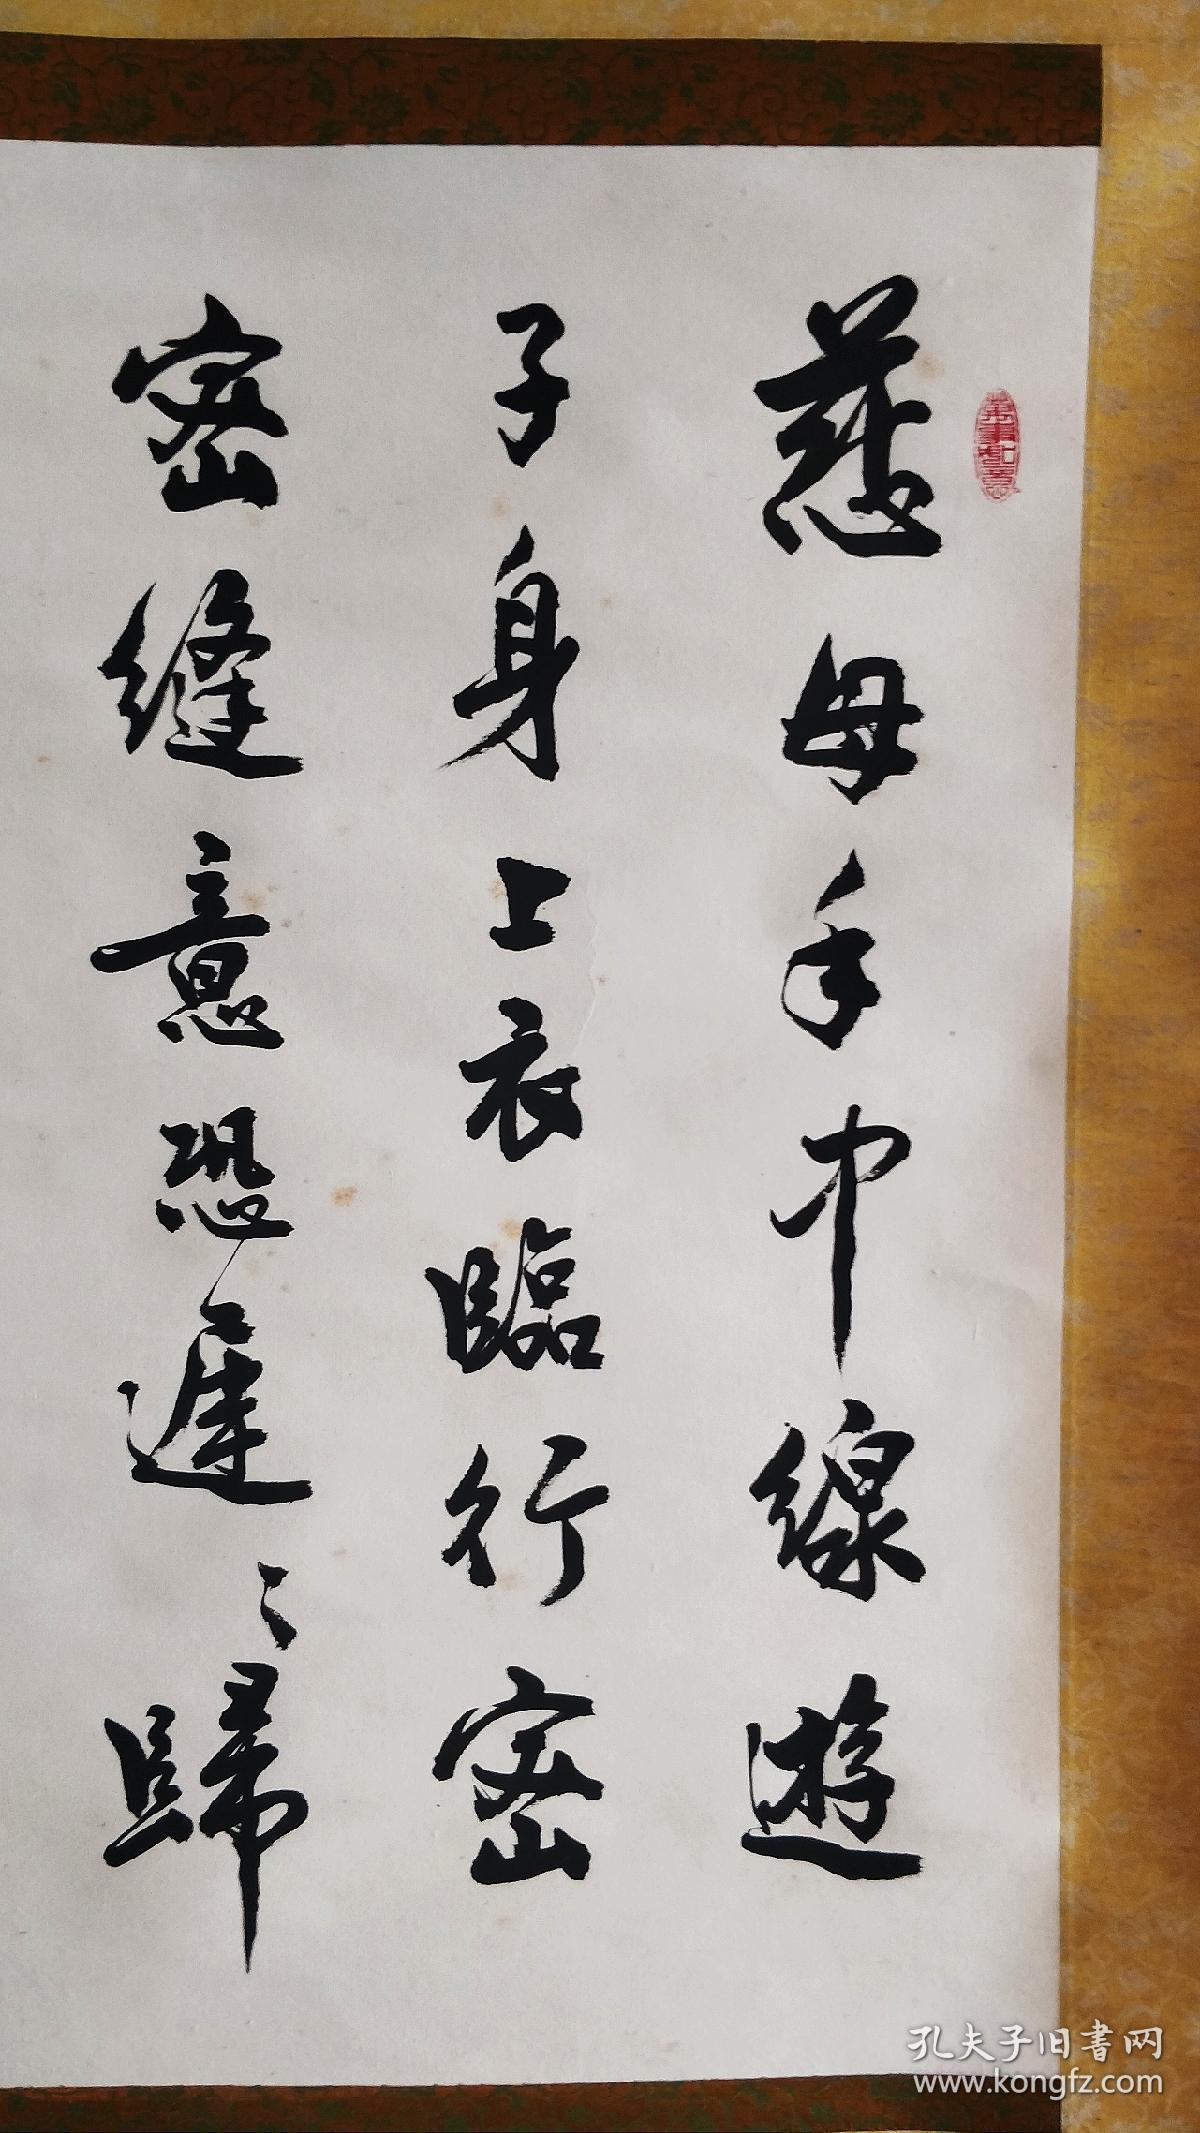 慈母手中線遊
子身上衣臨行密
密縫意恐遲〻歸
萬事如意
孔夫子旧書网
www.kongfz.com